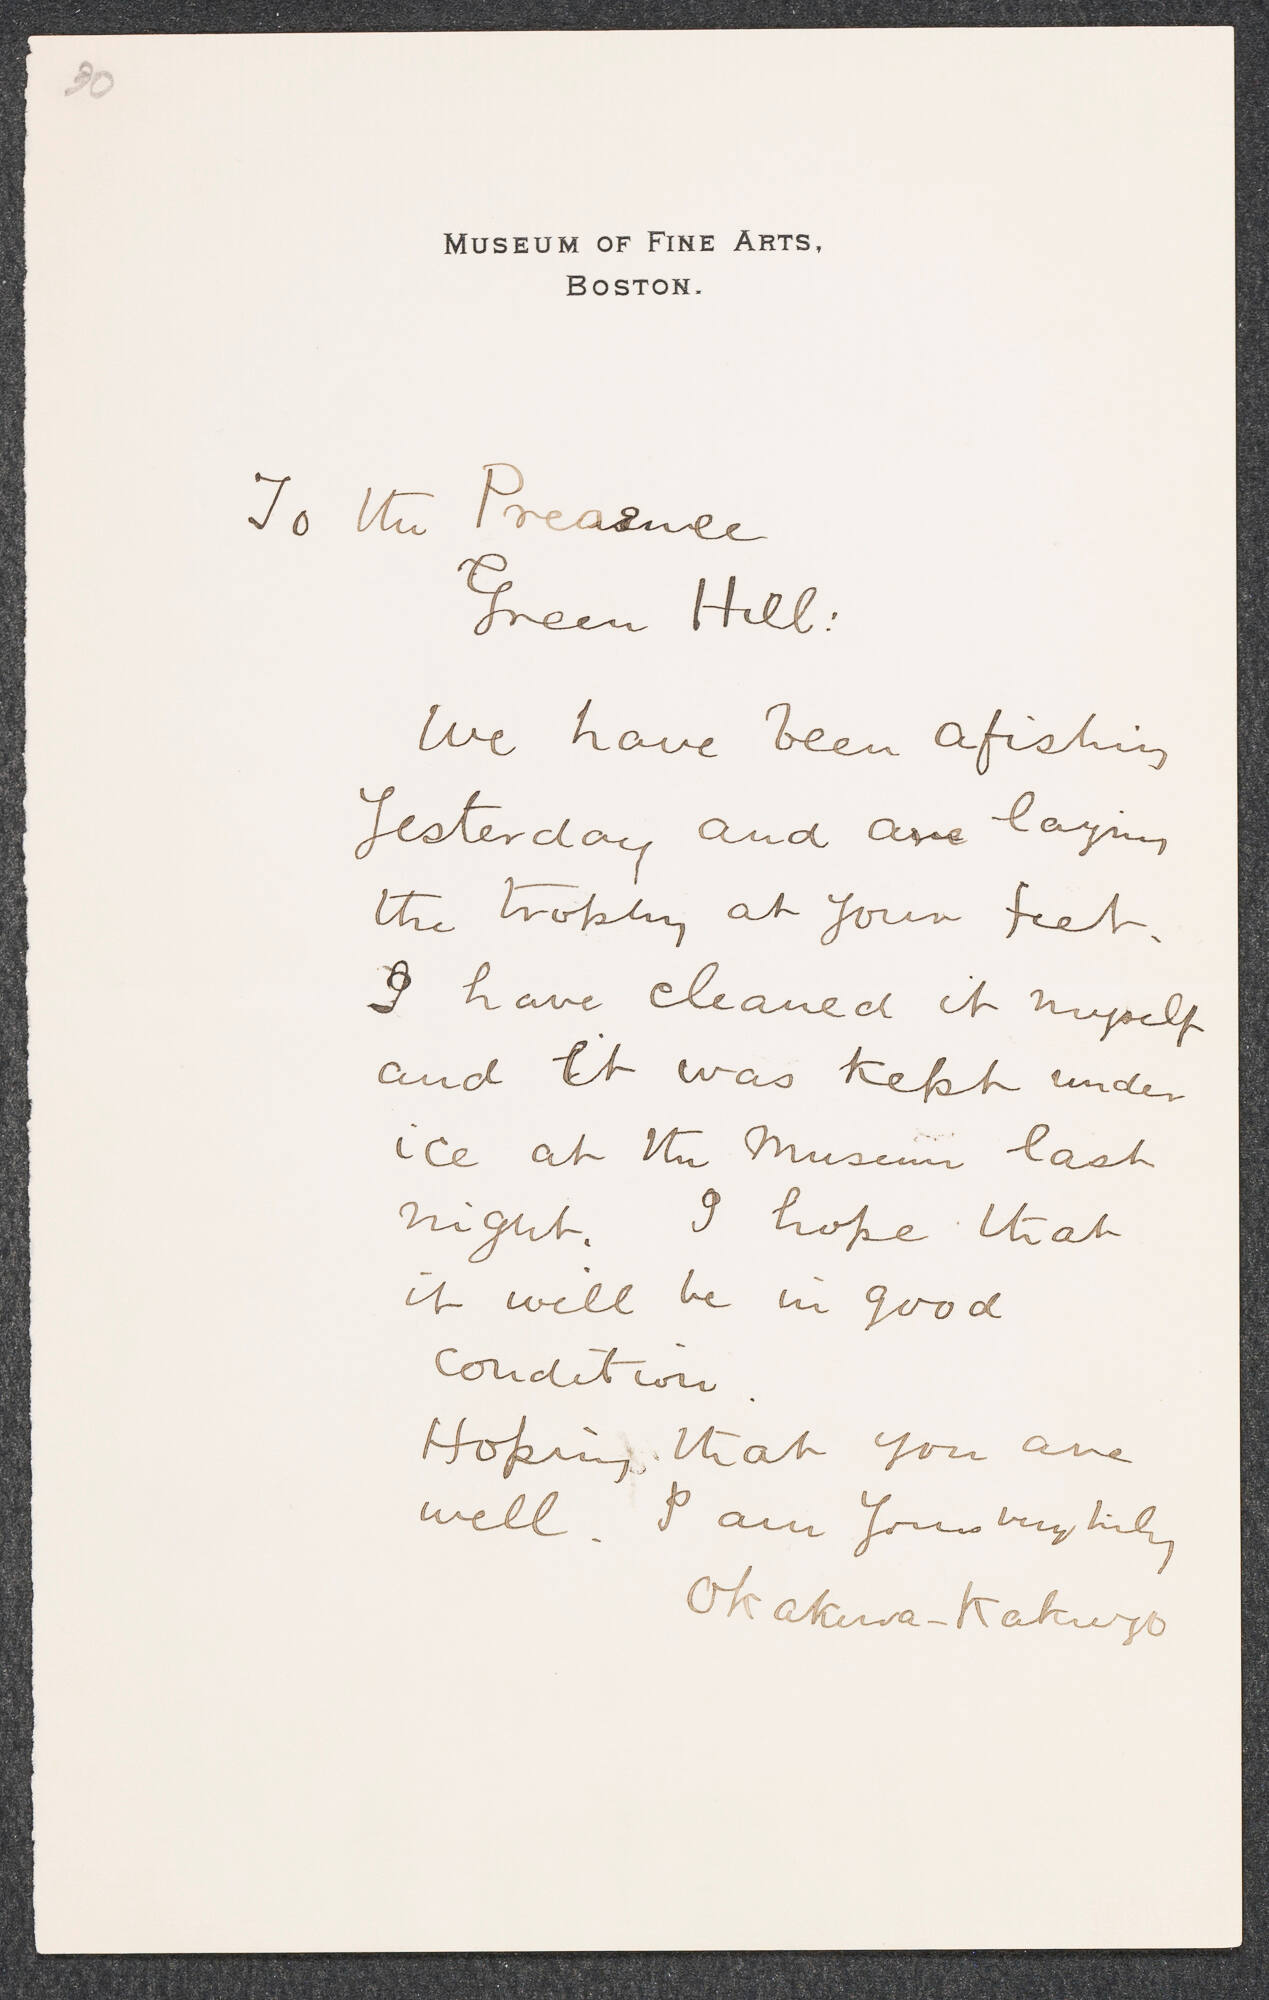 30
MUSEUM OF FINE ARTS,
BOSTON.
To the Preasence
Green Hill:
We have been afishing
Yesterday and are laying
the trophy at your feet.
I have cleaned it myself
and it was kept under
ice at the Museum last
night. I hope that
it will be in good
condition.
Hoping that you are
well. I am Yours very truly
Okakura-Kakuzo